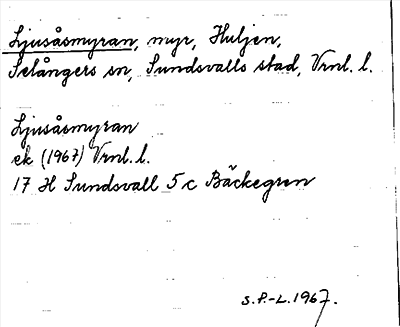 Ljusåsmyran, myr, Huljen,
Selångers sn, Sundsvalls stad, Vrnl. l.
Ljusåsmyran
ek (1967) Vrnl. l.
17 H Sundsvall 5 c Bäckegren
S.P.-L. 1967.